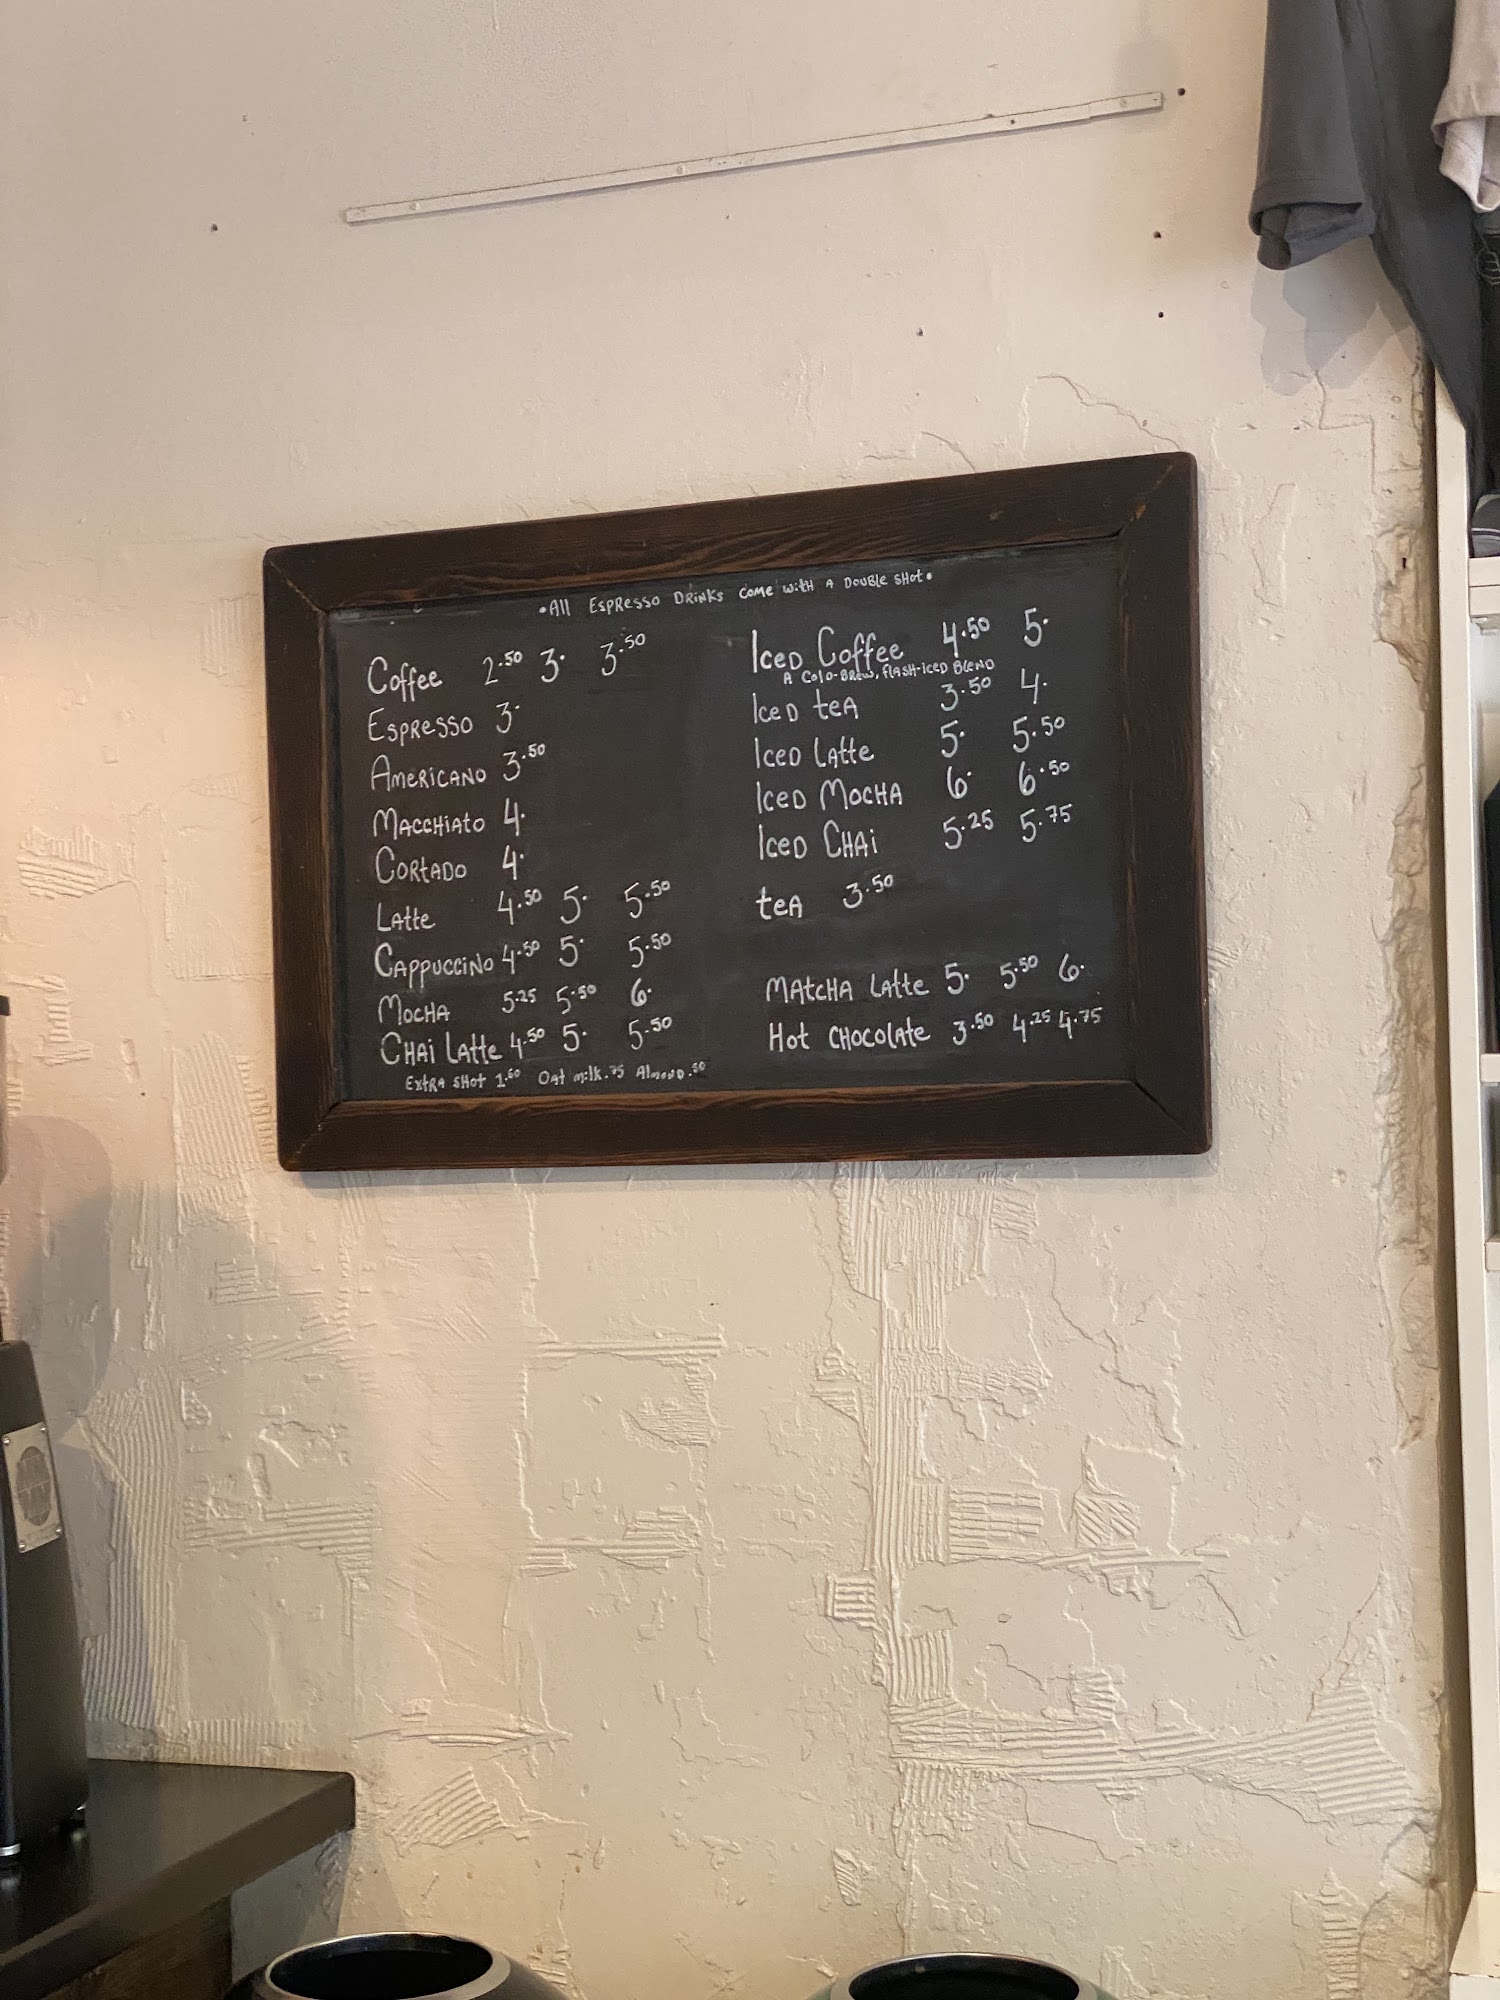 •All Espresso Drinks come with a double shot•
Coffee 2.50 3. 3.50
Espresso 3.
Americano 3.50
Macchiato 4.
Cortado 4.
Latte 4.50 5. 5.50
Cappuccino 4.50 5. 5.50
Mocha 5.25 5.50 6.
Chai Latte 4.50 5. 5.50
Extra shot 1.60 Oat milk .75 Almond .50
Iced Coffee 4.50 5.
A Cold-Brew, flash-iced Blend
Iced tea 3.50 4.
Iced Latte 5. 5.50
Iced Mocha 6. 6.50
Iced Chai 5.25 5.75
tea 3.50
Matcha Latte 5. 5.50 6.
Hot chocolate 3.50 4.25 4.75